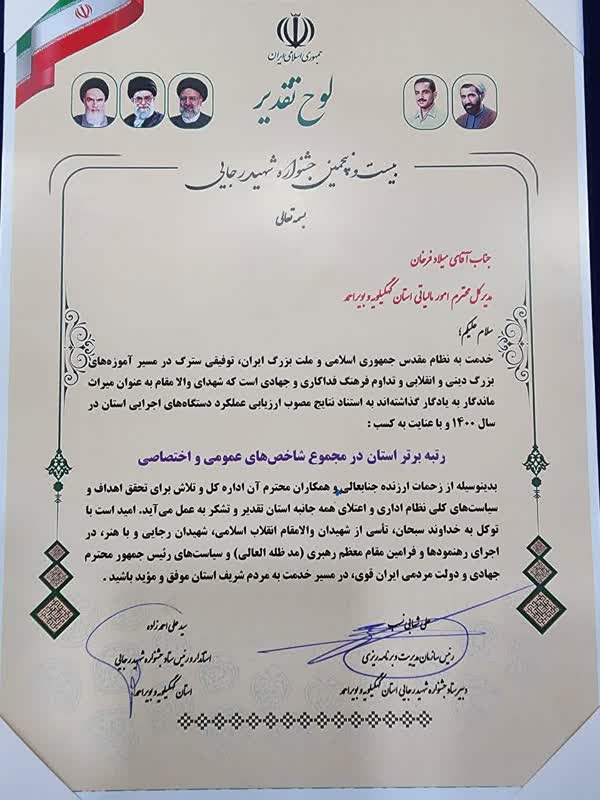 جمهوری اسلامی ایران
لوح تقدیر
بیست و پنجمین جشنواره شهید رجایی
بسمه تعالی
جناب آقای میلاد فرخان
مدیرکل محترم امور مالیاتی استان کهگیلویه و بویراحمد
سلام علیکم؛
خدمت به نظام مقدس جمهوری اسلامی و ملت بزرگ ایران، توفیقی سترگ در مسیر آموزه‌های
بزرگ دینی و انقلابی و تداوم فرهنگ فداکاری و جهادی است که شهدای والا مقام به عنوان میراث
ماندگار به یادگار گذاشته‌اند به استناد نتایج مصوب ارزیابی عملکرد دستگاه‌های اجرایی استان در
سال ۱۴۰۰ و با عنایت به کسب :
رتبه برتر استان در مجموع شاخص‌های عمومی و اختصاصی
بدینوسیله از زحمات ارزنده جنابعالی و همکاران محترم آن اداره کل و تلاش برای تحقق اهداف و
سیاست‌های کلی نظام اداری و اعتلای همه جانبه استان تقدیر و تشکر به عمل می‌آید. امید است با
توکل به خداوند سبحان، تأسی از شهیدان والامقام انقلاب اسلامی، شهیدان رجایی و با هنر، در
اجرای رهنمودها و فرامین مقام معظم رهبری (مد ظله العالی) و سیاست‌های رئیس جمهور محترم
جهادی و دولت مردمی ایران قوی، در مسیر خدمت به مردم شریف استان موفق و مؤید باشید .
علی شهابی نسب
رئیس سازمان مدیریت و برنامه ریزی
دبیر ستاد جشنواره شهید رجایی استان کهگیلویه و بویراحمد
سید علی احمدزاده
استاندار و رئیس ستاد جشنواره شهید رجایی
استان کهگیلویه و بویراحمد